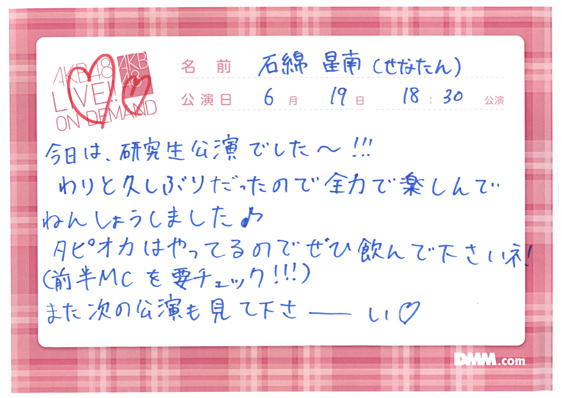 AKB48
LIVE!!
ON DEMAND
AKB
48
名 前 石綿 星南(せなたん)
公演日 6月 19日 18:30 公演
今日は、研究生公演でした〜!!!
わりと久しぶりだったので全力で楽しんで
ねんしょうしました♪
タピオカはやってるのでぜひ飲んで下さいネ!
(前半MCを要チェック!!!)
また次の公演も見て下さ――い♡
DMM.com